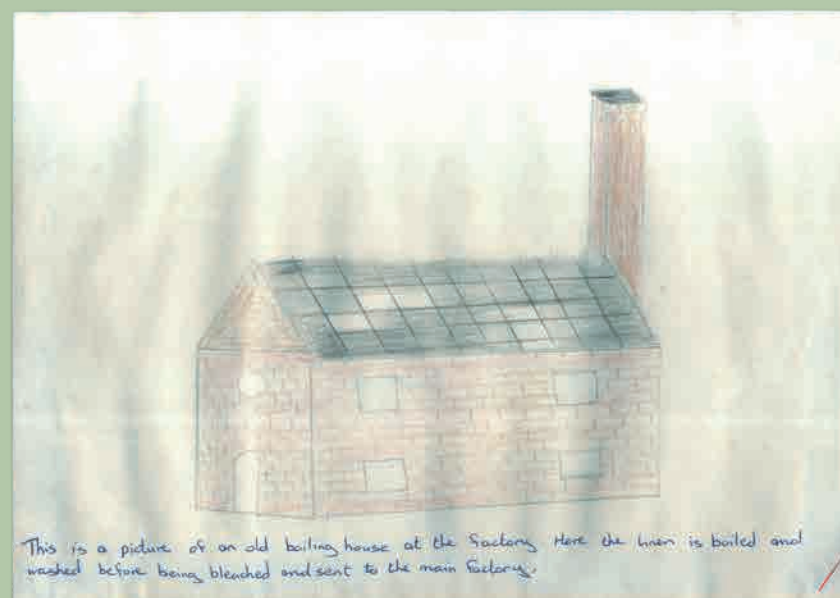 This is a picture of an old boiling house at the factory Here the linen is boiled and
washed before being bleached and sent to the main factory.